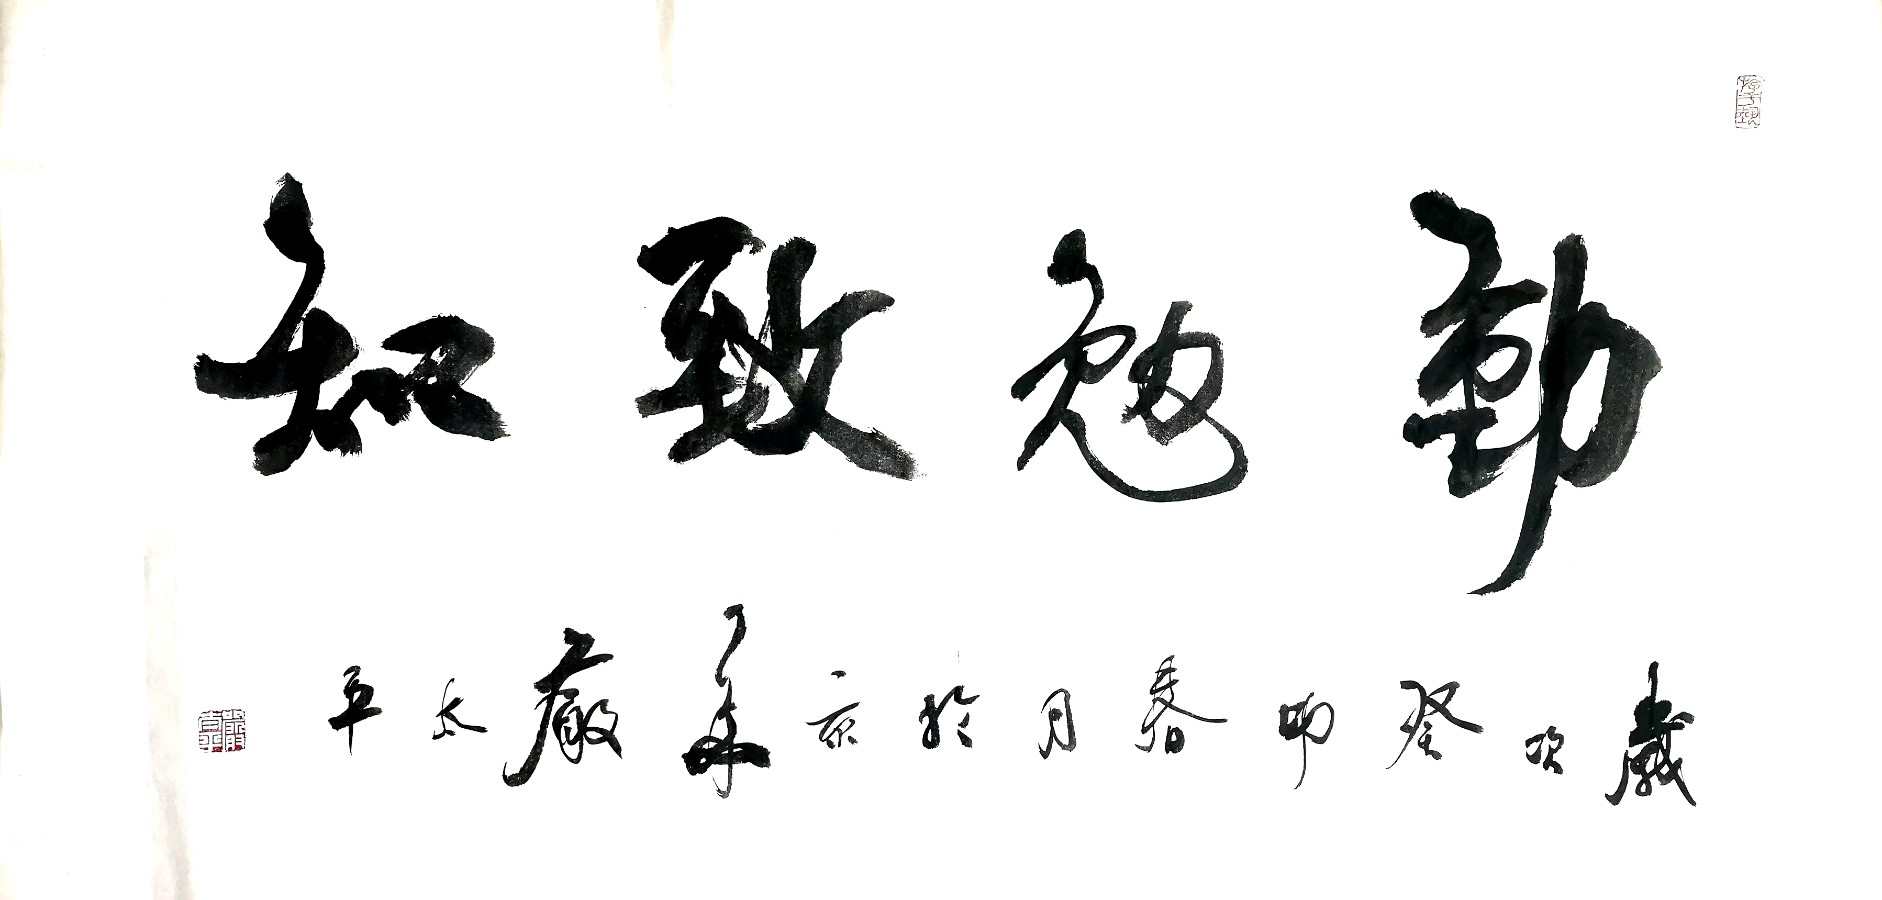 勤勉致知
歲次癸卯春月於京華嚴太平